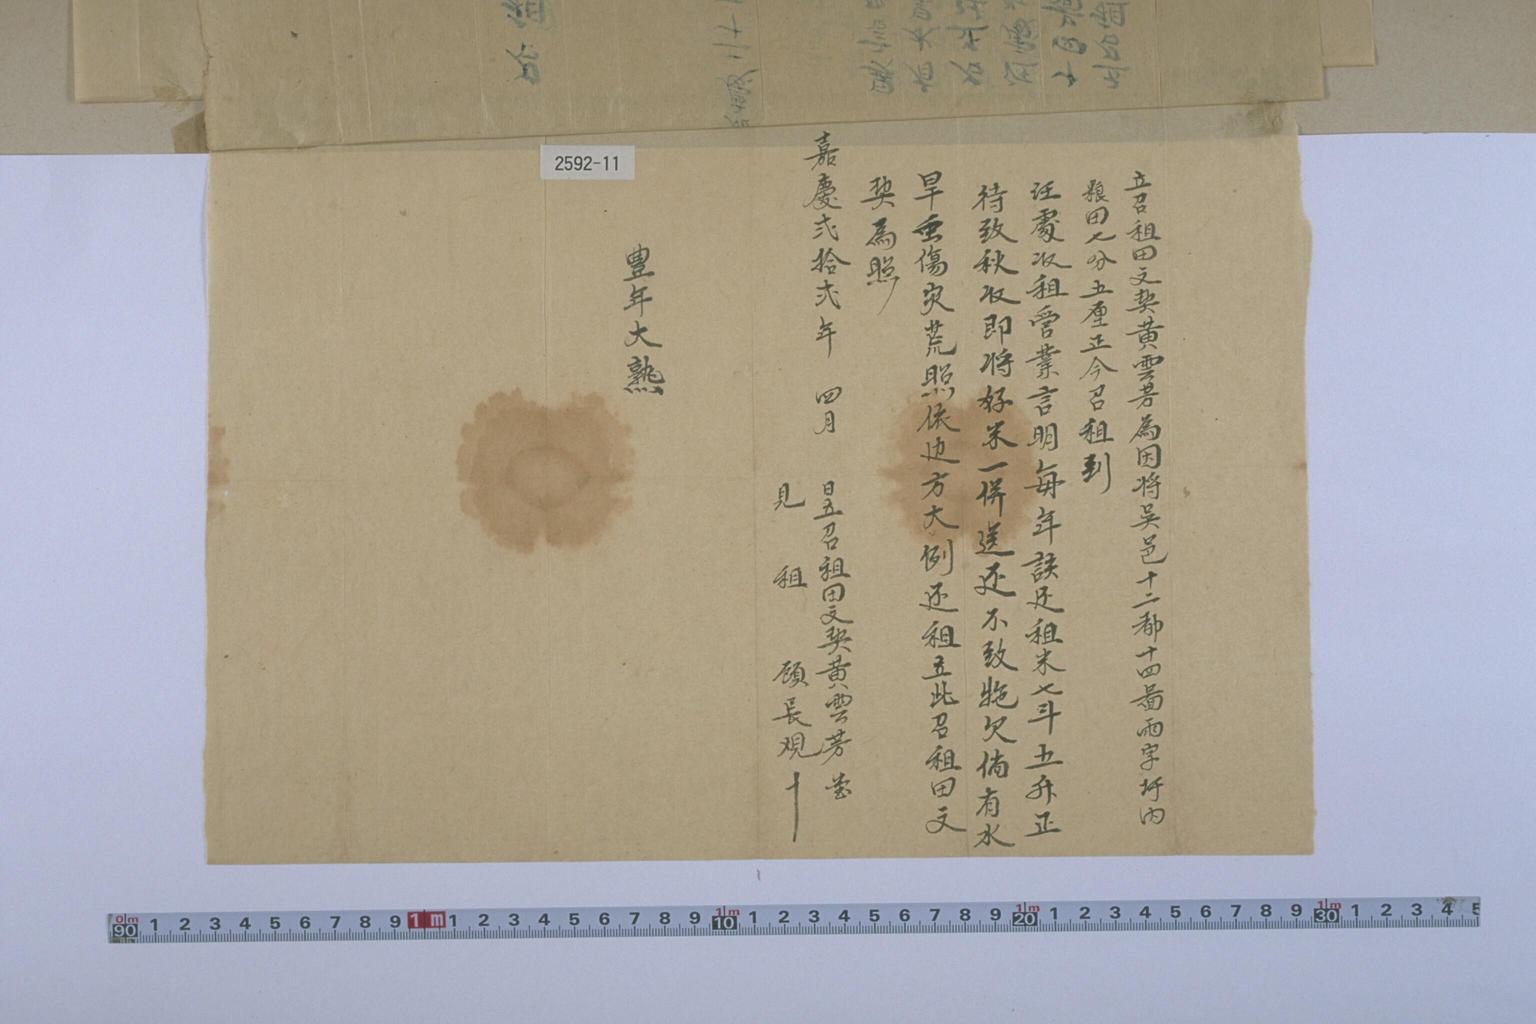 立召租田文契黄雲芳為因將吳邑十二都十四啚雨字圩內
粮田七分五厘正今召租到
汪處收租營業言明每年該还租米七斗五升正
待致秋收即將好米一併送还不致拖欠倘有水
旱虫傷灾荒照依边方大例还租立此召租田文
契為照
嘉慶弍拾弍年 四月 日立召租田文契黄雲芳
見 租 顾長观 十
豊年大熟
2592-11